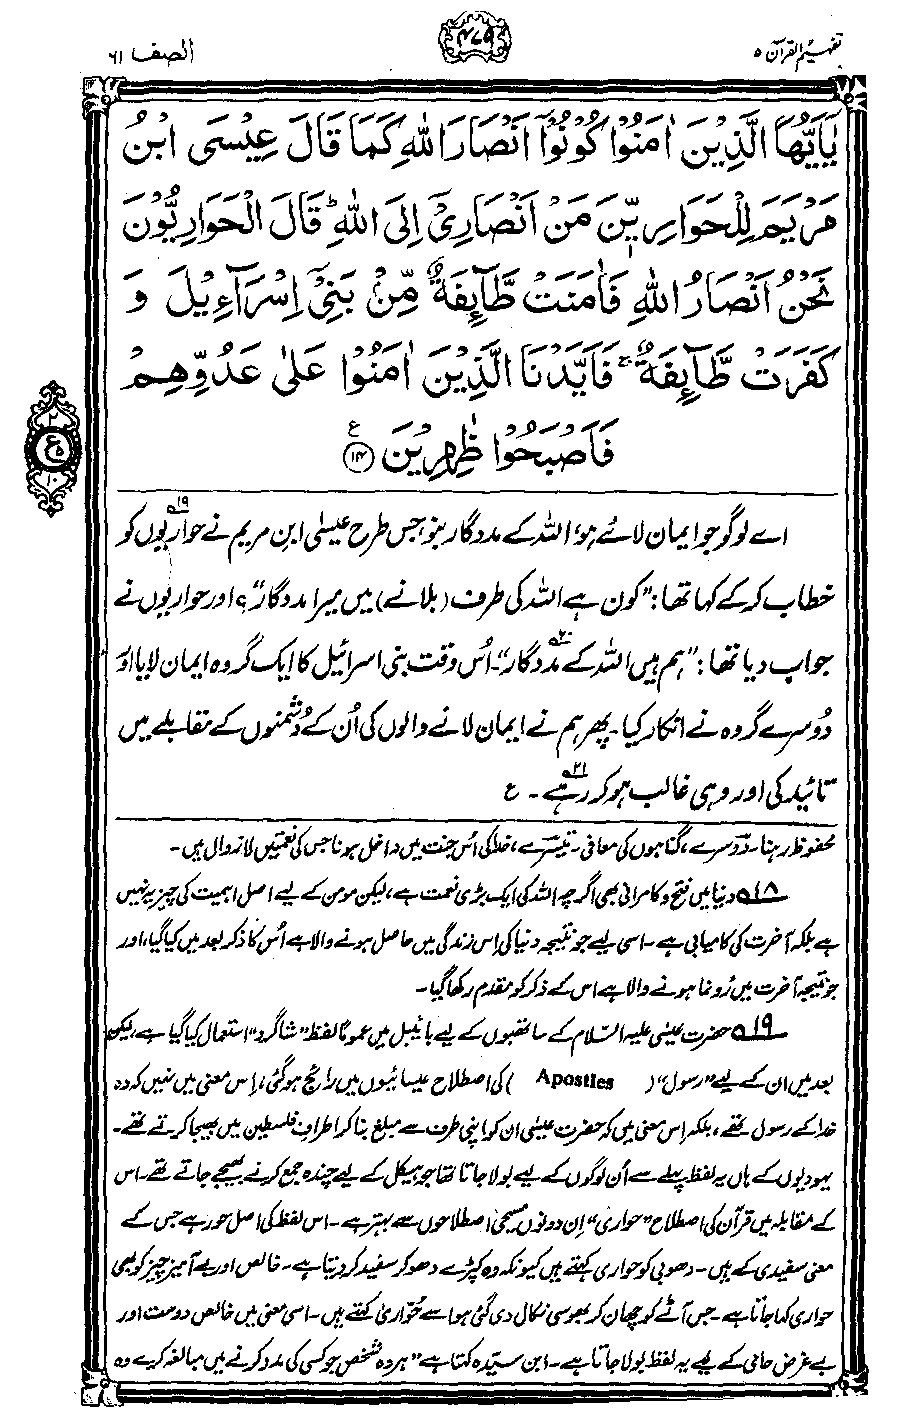 تفہیم القرآن ۵
۴۷۹
الصف ۶۱
یٰۤاَیُّهَا الَّذِیْنَ اٰمَنُوْا كُوْنُوْۤا اَنْصَارَ اللّٰهِ كَمَا قَالَ عِیْسَی ابْنُ
مَرْیَمَ لِلْحَوَارِیّٖنَ مَنْ اَنْصَارِیْۤ اِلَی اللّٰهِ ؕ قَالَ الْحَوَارِیُّوْنَ
نَحْنُ اَنْصَارُ اللّٰهِ فَاٰمَنَتْ طَّآىِٕفَةٌ مِّنْۢ بَنِیْۤ اِسْرَآءِیْلَ وَ
كَفَرَتْ طَّآىِٕفَةٌ ۚ فَاَیَّدْنَا الَّذِیْنَ اٰمَنُوْا عَلٰی عَدُوِّهِمْ
فَاَصْبَحُوْا ظٰهِرِیْنَ ﴿۱۴﴾ ع
۲
ع ۵
۱۰
اے لوگو جو ایمان لائے ہو، اللہ کے مددگار بنو، جس طرح عیسیٰ ابن مریم نے حواریوں۱۹ کو
خطاب کر کے کہا تھا: ”کون ہے اللہ کی طرف (بلانے) میں میرا مددگار“؟ اور حواریوں نے
جواب دیا تھا: ”ہم ہیں اللہ کے مددگار۲۰“۔ اُس وقت بنی اسرائیل کا ایک گروہ ایمان لایا اور
دُوسرے گروہ نے انکار کیا۔ پھر ہم نے ایمان لانے والوں کی اُن کے دُشمنوں کے مقابلے میں
تائید کی اور وہی غالب ہو کر رہے۲۱۔ ع
محفوظ رہنا۔ دوسرے، گناہوں کی معافی۔ تیسرے، خدا کی اُس جنت میں داخل ہونا جس کی نعمتیں لازوال ہیں۔
۱۸ دنیا میں فتح و کامرانی بھی اگرچہ اللہ کی ایک بڑی نعمت ہے، لیکن مومن کے لیے اصل اہمیت کی چیز یہ نہیں
ہے بلکہ آخرت کی کامیابی ہے۔ اسی لیے جو نتیجہ دنیا کی اِس زندگی میں حاصل ہونے والا ہے اُس کا ذکر بعد میں کیا گیا، اور
جو نتیجہ آخرت میں رُونما ہونے والا ہے اس کے ذکر کو مقدم رکھا گیا۔
۱۹ حضرت عیسیٰ علیہ السّلام کے ساتھیوں کے لیے بائیبل میں عموماً لفظ ”شاگرد“ استعمال کیا گیا ہے، لیکن
بعد میں ان کے لیے ”رسول“ (Apostles) کی اصطلاح عیسائیوں میں رائج ہو گئی، اِس معنی میں نہیں کہ وہ
خدا کے رسول تھے، بلکہ اس معنی میں کہ حضرت عیسیٰ ان کو اپنی طرف سے مبلغ بنا کر اطراف فلسطین میں بھیجا کرتے تھے۔
یہودیوں کے ہاں یہ لفظ پہلے سے اُن لوگوں کے لیے بولا جاتا تھا جو ہیکل کے لیے چندہ جمع کرنے بھیجے جاتے تھے۔ اس
کے مقابلہ میں قرآن کی اصطلاح ”حواری“ اِن دونوں مسیحی اصطلاحوں سے بہتر ہے۔ اس لفظ کی اصل حور ہے جس کے
معنی سفیدی کے ہیں۔ دھوبی کو حواری کہتے ہیں کیونکہ وہ کپڑے دھو کر سفید کر دیتا ہے۔ خالص اور بے آمیز چیز کو بھی
حواری کہا جاتا ہے۔ جس آٹے کو چھان کر بھوسی نکال دی گئی ہو اسے حُوّاریٰ کہتے ہیں۔ اسی معنی میں خالص دوست اور
بے غرض حامی کے لیے یہ لفظ بولا جاتا ہے۔ ابن سیّدہ کہتا ہے ”ہر وہ شخص جو کسی کی مدد کرنے میں مبالغہ کرے وہ